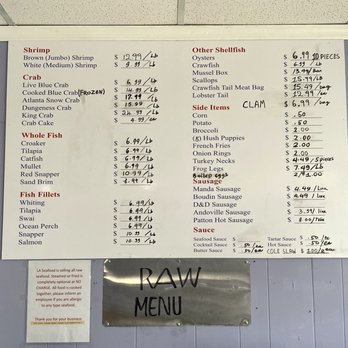 Shrimp
Brown (Jumbo) Shrimp $ 12.99/Lb
White (Medium) Shrimp $ 9.99/Lb
Crab
Live Blue Crab $ 6.99/Lb
Cooked Blue Crab (FROZEN) $ 14.99/Lb
Atlanta Snow Crab $ 17.99/Lb
Dungeness Crab $
King Crab $
Crab Cake $
Whole Fish
Croaker $ 6.99/Lb
Tilapia $ 6.99/Lb
Catfish $ 6.99/Lb
Mullet $ 6.99/Lb
Red Snapper $ 10.99/Lb
Sand Brim $
Fish Fillets
Whiting $ 6.99/Lb
Tilapia $ 6.99/Lb
Swai $ 6.99/Lb
Ocean Perch $ 6.99/Lb
Snapper $ 10.99/Lb
Salmon $ 10.99/Lb
Other Shellfish
Oysters $ 6.99 10 PIECES
Crawfish $ 6.99/Lb
Mussel Box $ 13.99/Box
Scallops $ 15.99/Lb
Crawfish Tail Meat Bag $ 15.49/bag
Lobster Tail $ 12.99/ea
CLAM $ 6.99/bag
Side Items
Corn $ .50
Potato $ .50
Broccoli $ 2.00
Hush Puppies $ 2.00
French Fries $ 2.00
Onion Rings $ 2.00
Turkey Necks $ 4.49/5 pieces
Frog Legs $ 7.49/Lb
Boiled eggs
Sausage
Manda Sausage $ 4.49/
Boudin Sausage $ 4.49/
D&D Sausage $
Andoville Sausage $ 3.99/
Patton Hot Sausage $
Sauce
Seafood Sauce $
Cocktail Sauce $ .50/ea
Butter Sauce $ .50/ea
Tartar Sauce $ .50/ea
Hot Sauce $ .50/ea
COLE SLAW $
LA Seafood is selling all raw
seafood. Steamed or fried is
completely optional at NO
CHARGE. All food is cooked
together, please inform an
employee if you are allergic
to any type seafood.
Thank you for your business
RAW
MENU